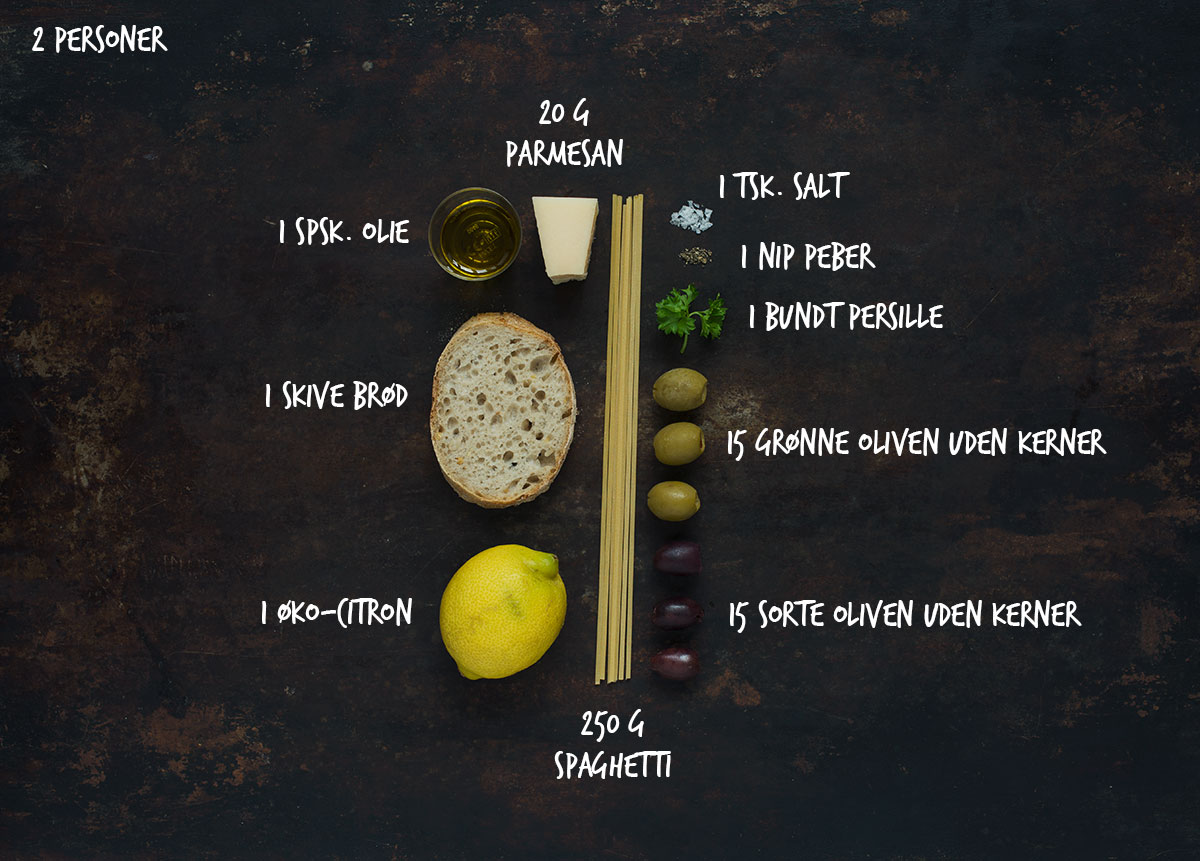 2 PERSONER
20 G
PARMESAN
1 TSK. SALT
1 SPSK. OLIE
1 NIP PEBER
1 BUNDT PERSILLE
1 SKIVE BRØD
15 GRØNNE OLIVEN UDEN KERNER
1 ØKO-CITRON
15 SORTE OLIVEN UDEN KERNER
250 G
SPAGHETTI